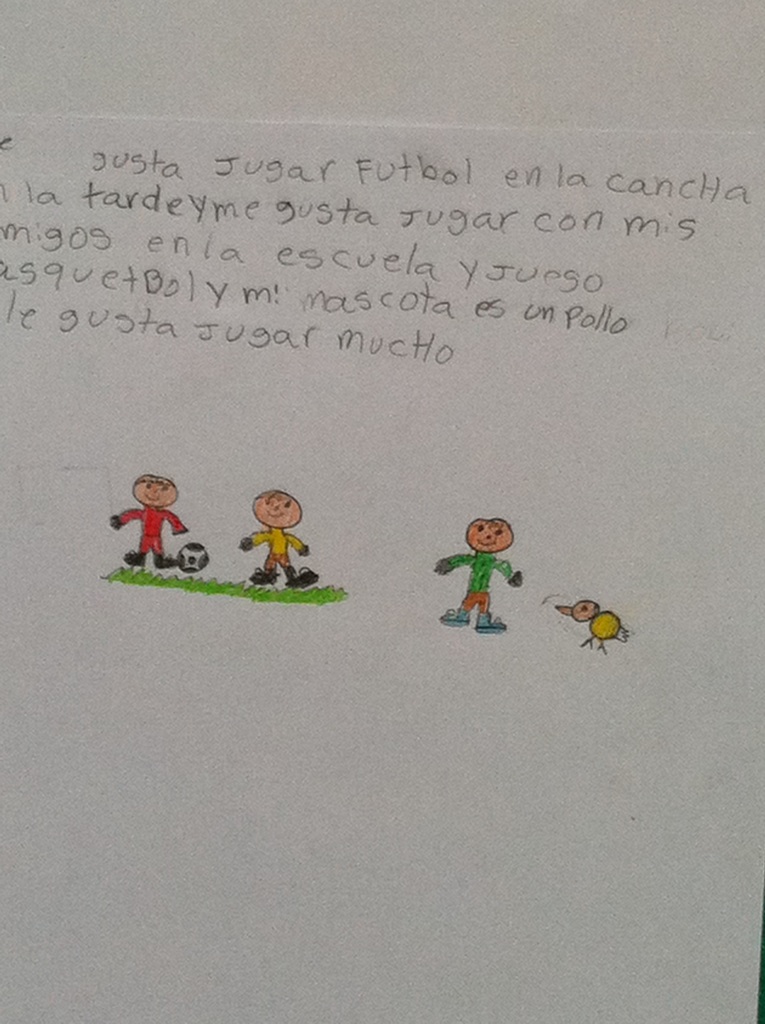 e gusta Jugar Futbol en la cancHa
n la tarde y me gusta Jugar con mis
migos en la escuela y Juego
asquetBol y mi mascota es un Pollo
le gusta Jugar mucHo